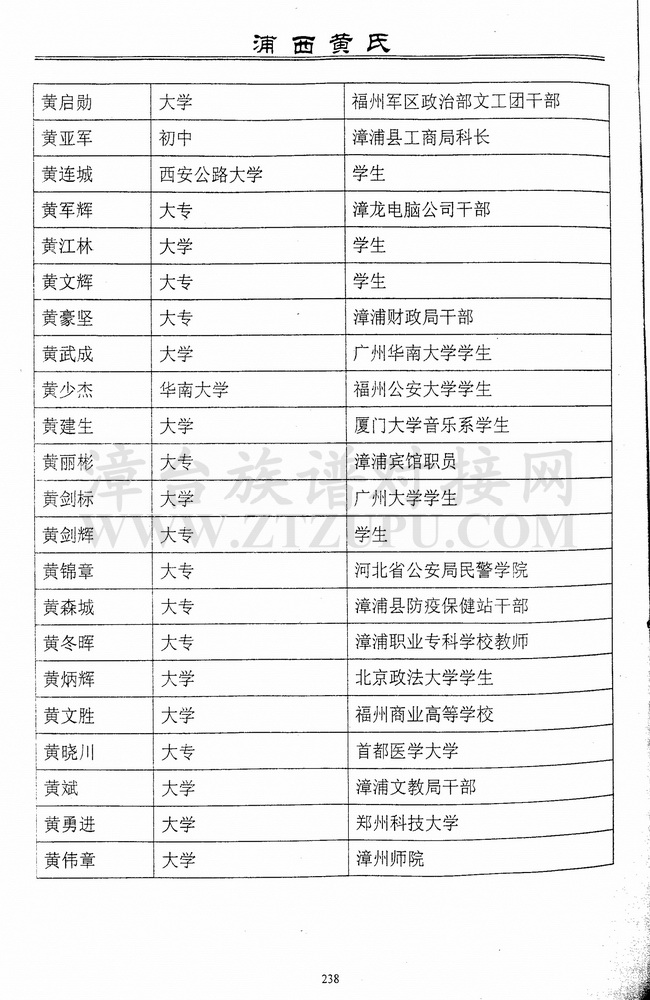 浦西黄氏
黄启勋 大学 福州军区政治部文工团干部
黄亚军 初中 漳浦县工商局科长
黄连城 西安公路大学 学生
黄军辉 大专 漳龙电脑公司干部
黄江林 大学 学生
黄文辉 大专 学生
黄豪坚 大专 漳浦财政局干部
黄武成 大学 广州华南大学学生
黄少杰 华南大学 福州公安大学学生
黄建生 大学 厦门大学音乐系学生
黄丽彬 大专 漳浦宾馆职员
黄剑标 大学 广州大学学生
黄剑辉 大专 学生
黄锦章 大专 河北省公安局民警学院
黄森城 大专 漳浦县防疫保健站干部
黄冬晖 大专 漳浦职业专科学校教师
黄炳辉 大学 北京政法大学学生
黄文胜 大学 福州商业高等学校
黄晓川 大专 首都医学大学
黄斌 大学 漳浦文教局干部
黄勇进 大学 郑州科技大学
黄伟章 大学 漳州师院
漳台族谱对接网
WWW.ZTZUPU.COM
238